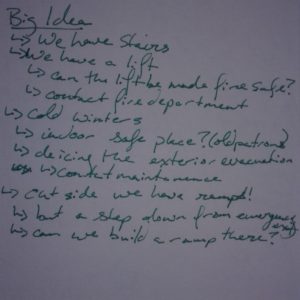 Big Idea
↳ We have Stairs
↳ We have a lift
↳ can the lift be made fire safe?
↳ contact fire department
↳ cold winters
↳ indoor safe place? (old patrons)
↳ deicing the exterior evacuation
↳ contact maintenance
↳ out side we have ramps!
↳ but a step down from emergency exit
↳ can we build a ramp there?